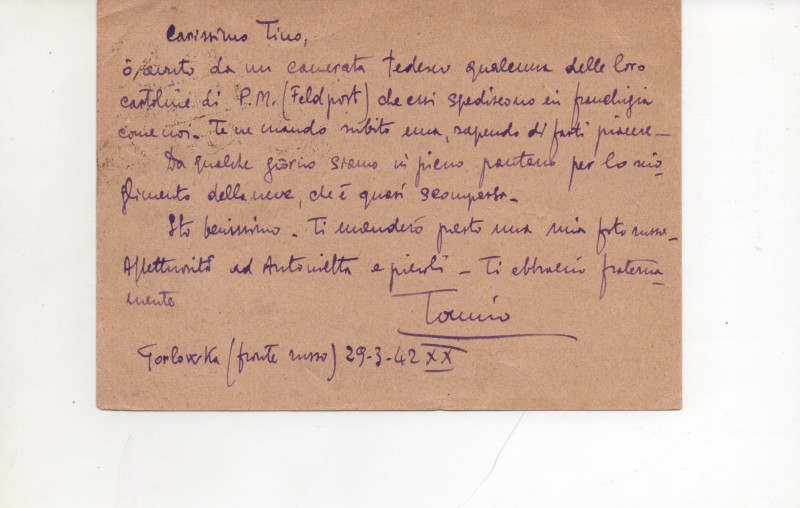 Carissimo Tino,
ò avuto da un camerata tedesco qualcuna delle loro
cartoline di P.M. (Feldpost) che essi spediscono in franchigia
come noi - Te ne mando subito una, sapendo di farti piacere -
Da qualche giorno siamo in pieno pantano per lo scio-
glimento della neve, che è quasi scomparsa -
Sto benissimo - Ti manderò presto una mia foto russa -
Affettuosità ad Antonietta e piccoli - Ti abbraccio fraterna-
mente
Gorlovska (fronte russo) 29-3-42 XX